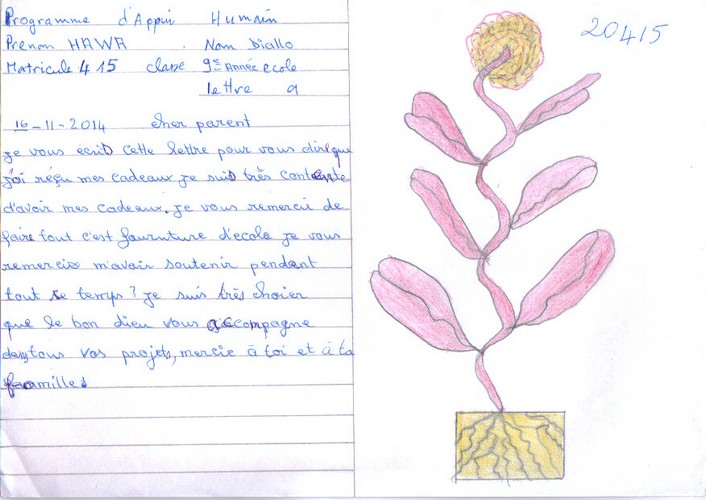 Programme d'Appui Humain
Prenom HAWA . Nom Diallo
Matricule 415 classe 9e Année école
lettre a
16-11-2014 cher parent
je vous écris cette lettre pour vous dire que
j'ai réçu mes cadeaux je suis très contente
d'avoir mes cadeaux. je vous remercié de
faire tout c'est fourniture d'ecole je vous
remercie m'avoir soutenir pendant
tout se temps? je suis très
que le bon dieu vous accompagne
dans tous vos projets, mercie à toi et à ta
famille.
20415